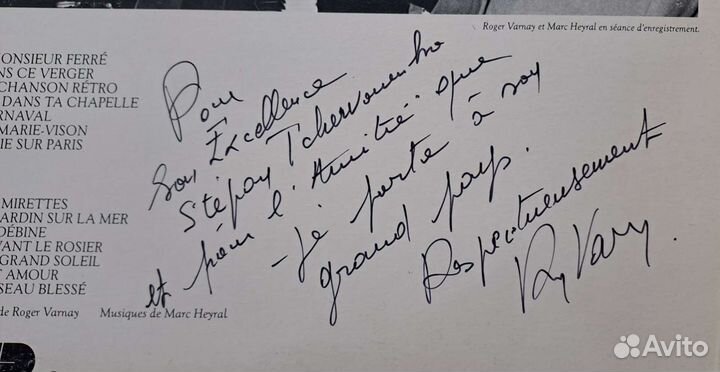 Roger Varnay et Marc Heyral en séance d'enregistrement.
ONSIEUR FERRÉ
NS CE VERGER
CHANSON RÉTRO
DANS TA CHAPELLE
RNAVAL
MARIE-VISON
IE SUR PARIS
MIRETTES
ARDIN SUR LA MER
DÉBINE
VANT LE ROSIER
GRAND SOLEIL
T AMOUR
SEAU BLESSÉ
de Roger Varnay Musiques de Marc Heyral
Pour
Son Excellence
Stépan Tchervonenko
et pour l'"Amitié" que
Je porte à son
grand pays.
Respectueusement
R. Varnay.
Avito